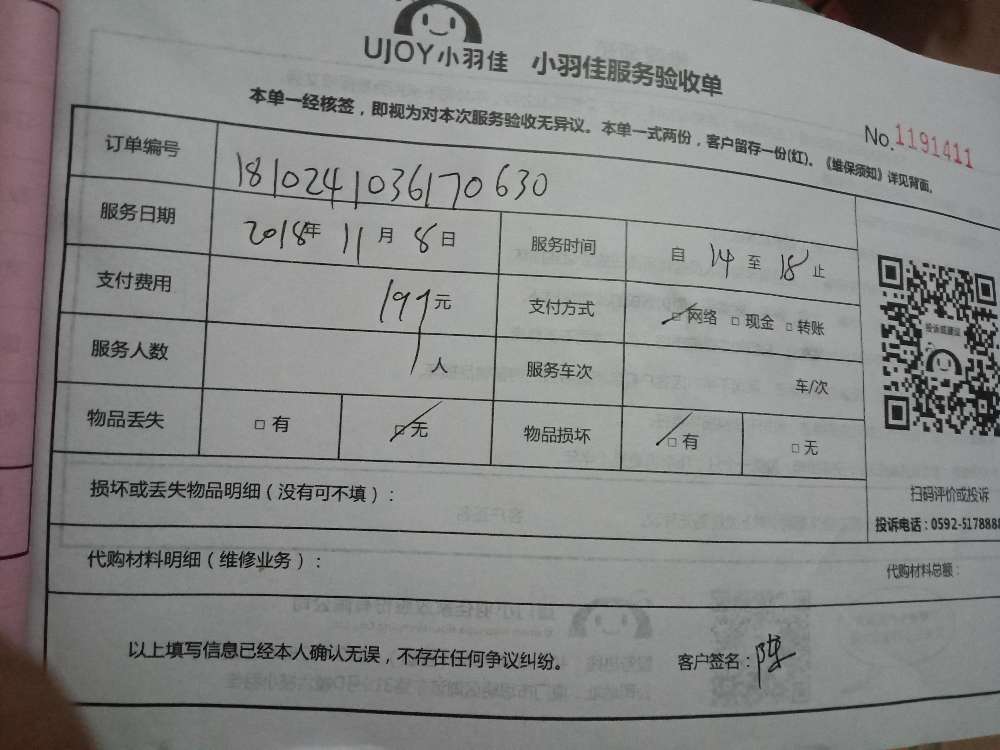 UJOY小羽佳 小羽佳服务验收单
本单一经核签，即视为对本次服务验收无异议。本单一式两份，客户留存一份(红)。《维保须知》详见背面。
No.1191411
订单编号 1810241036170630
服务日期 2018年 11月 8日 服务时间 自 14 至 18 止
支付费用 197元 支付方式 □网络 □现金 □转账
服务人数 人 服务车次 车/次
物品丢失 □有 □无 物品损坏 □有 □无
投诉或建议
扫码评价或投诉
投诉电话：0592-5178888
损坏或丢失物品明细（没有可不填）：
代购材料明细（维修业务）： 代购材料总额：
以上填写信息已经本人确认无误，不存在任何争议纠纷。 客户签名：陈